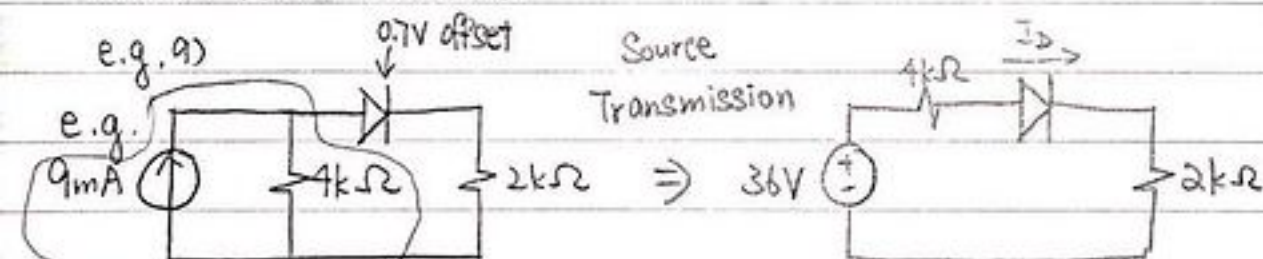 e.g. 9)
0.7V offset
Source
Transmission
e.g.
9mA
4kΩ
2kΩ
⇒
36V
4kΩ
I_D
2kΩ